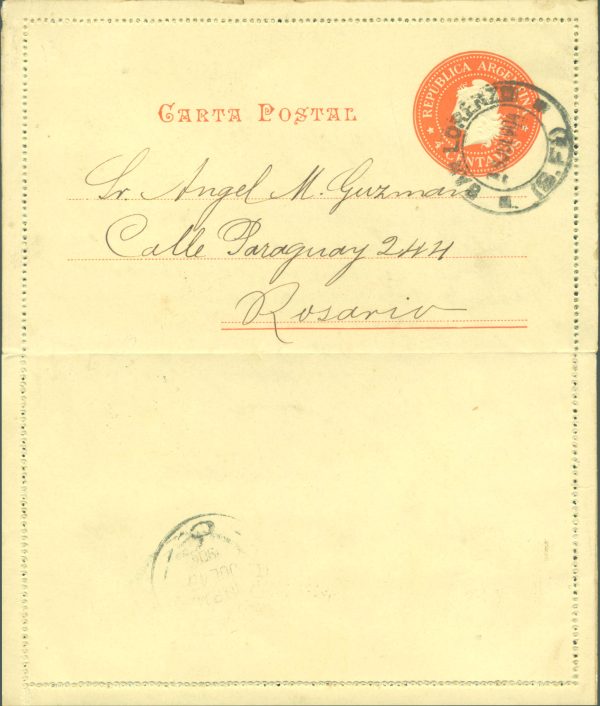 REPUBLICA ARGENTINA
CARTA POSTAL
4 CENTAVOS
SAN LORENZO
(S.FE)
Sr. Angel M. Guzman
Calle Paraguay 244
Rosario